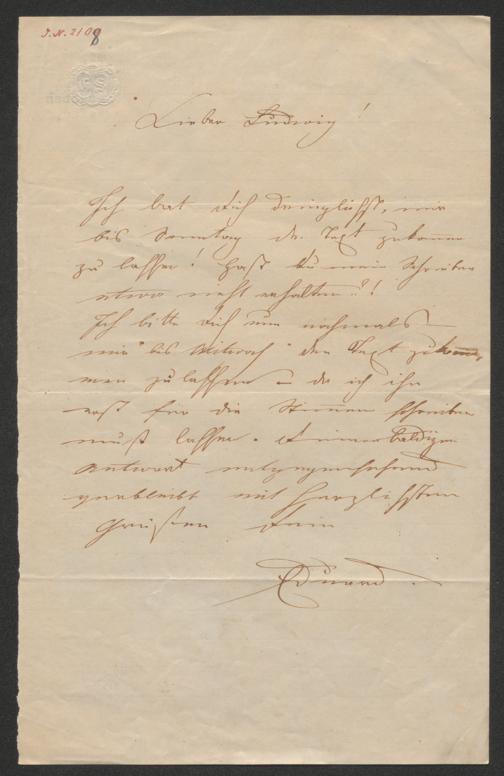 J.N. 2108
Lieber Ludwig!
Ich bat Dich dringlichst, mir
bis Sonntag den Text zukommen
zu lassen! Hast Du mein Schreiben
etwa nicht erhalten?!
Ich bitte Dich nun nochmals
mir bis Mittwoch den Text zukom-
men zu lassen – da ich ihn
erst für die Stimmen schreiben
muß lassen. Einer baldigen
Antwort entgegensehend
verbleibt mit herzlichsten
Grüßen Dein
Eduard.